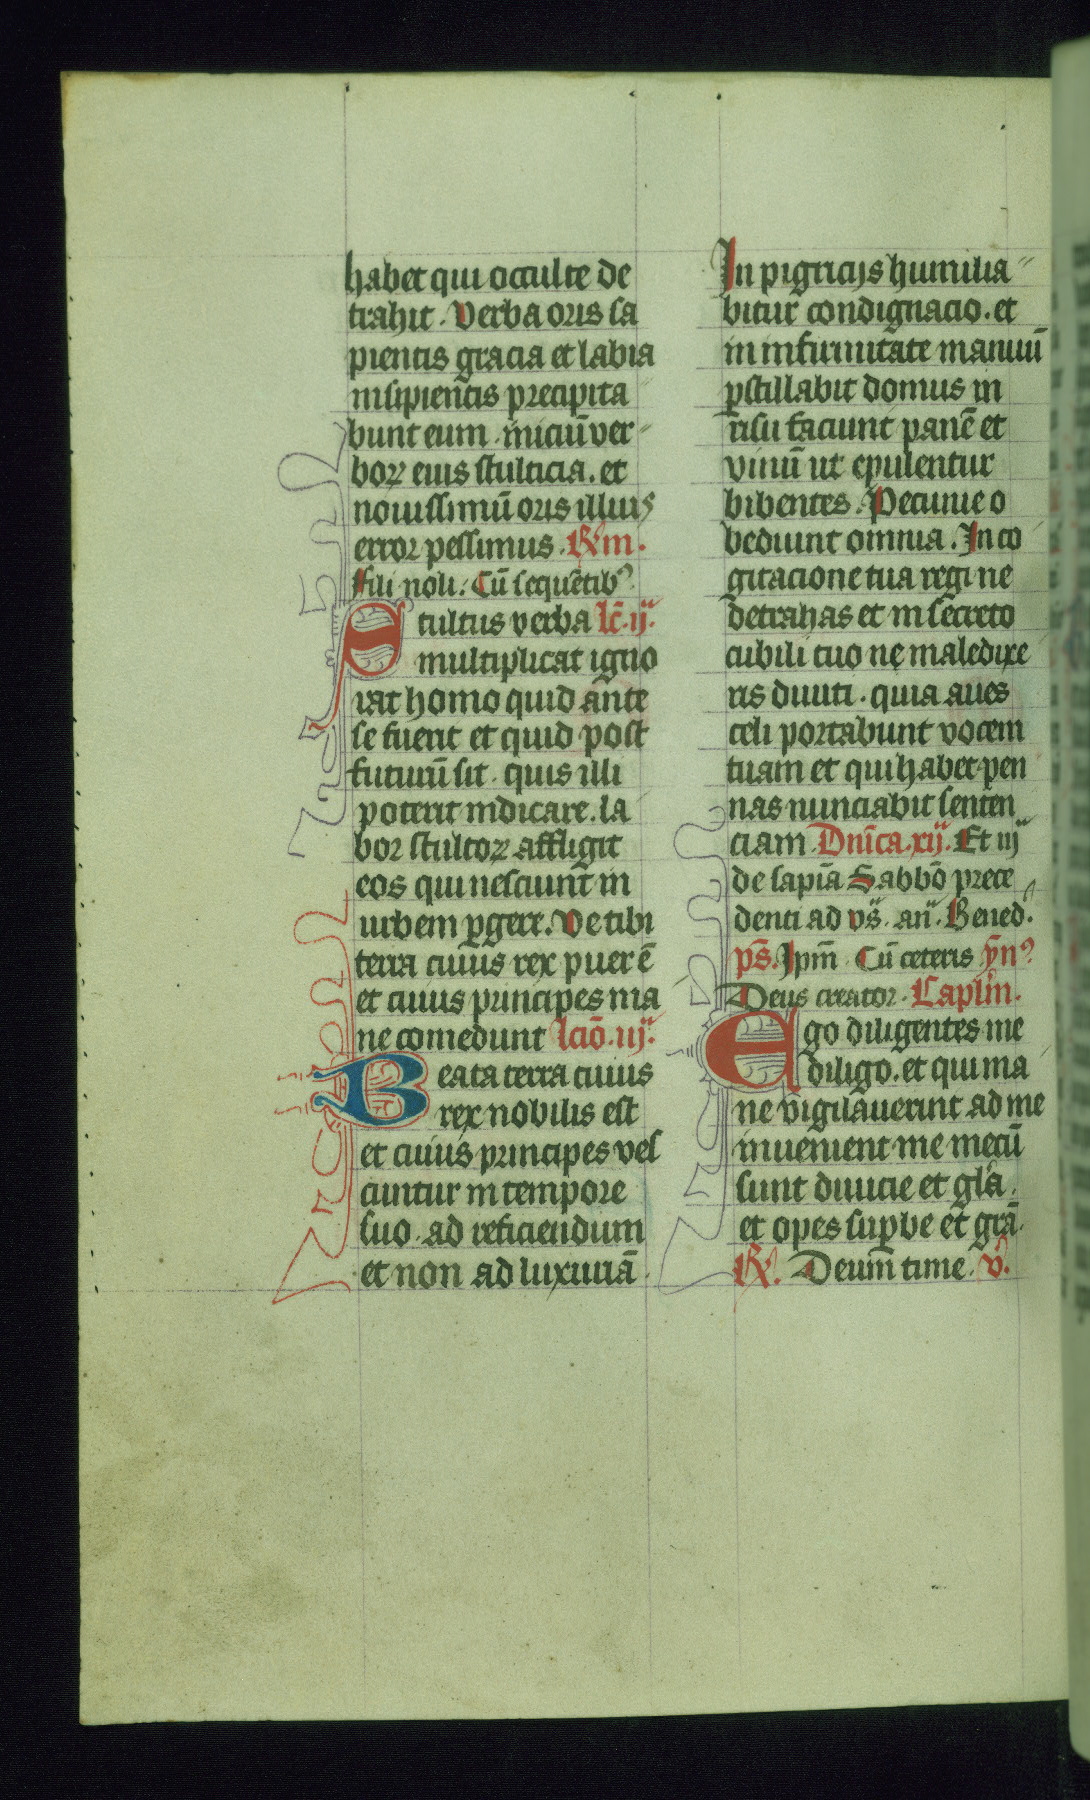 habet qui occulte de
trahit. Verba oris sa
pientis gracia et labia
insipientis precipita
bunt eum. iniciū ver
boꝝ eius stulticia. et
nouissimū oris illius
error pessimus. R̸m.
fili noli. Cū sequētibꝰ
Stultus verba lc̄. ij.
multiplicat igno
rat homo quid ante
se fuerit et quid post
futurū sit. quis illi
poterit indicare. la
bor stultoꝝ affligit
eos qui nesciunt in
urbem ꝑgere. Ve tibi
terra cuius rex puer ē
et cuius principes ma
ne comedunt lcīo. iij.
Beata terra cuius
rex nobilis est
et cuius principes ves
cuntur in tempore
suo. ad reficiendum
et non ad luxuriā.
In pigricijs humilia
bitur condignacio. et
in infirmitate manuū
ꝑstillabit domus in
risu faciunt panē et
vinū ut epulentur
bibentes. Pecunie o
bediunt omnia. In co
gitacione tua regi ne
detrahas et in secreto
cubili tuo ne maledixe
ris diuiti. quia aues
celi portabunt vocem
tuam et qui habet pen
nas nunciabit senten
ciam. Dn̄ica. xij. Et iij
de sapīa Sabbō prece
denti ad vs̄. an̄. Bened.
ps̄. Ipm̄ Cū ceteris ym̄ꝰ
Deus creator. Capl'm.
Ego diligentes me
diligo. et qui ma
ne vigilauerint ad me
inuenient me mecū
sunt diuicie et glā.
et opes suꝑbe et grā.
R̸. Deum time. v̄.